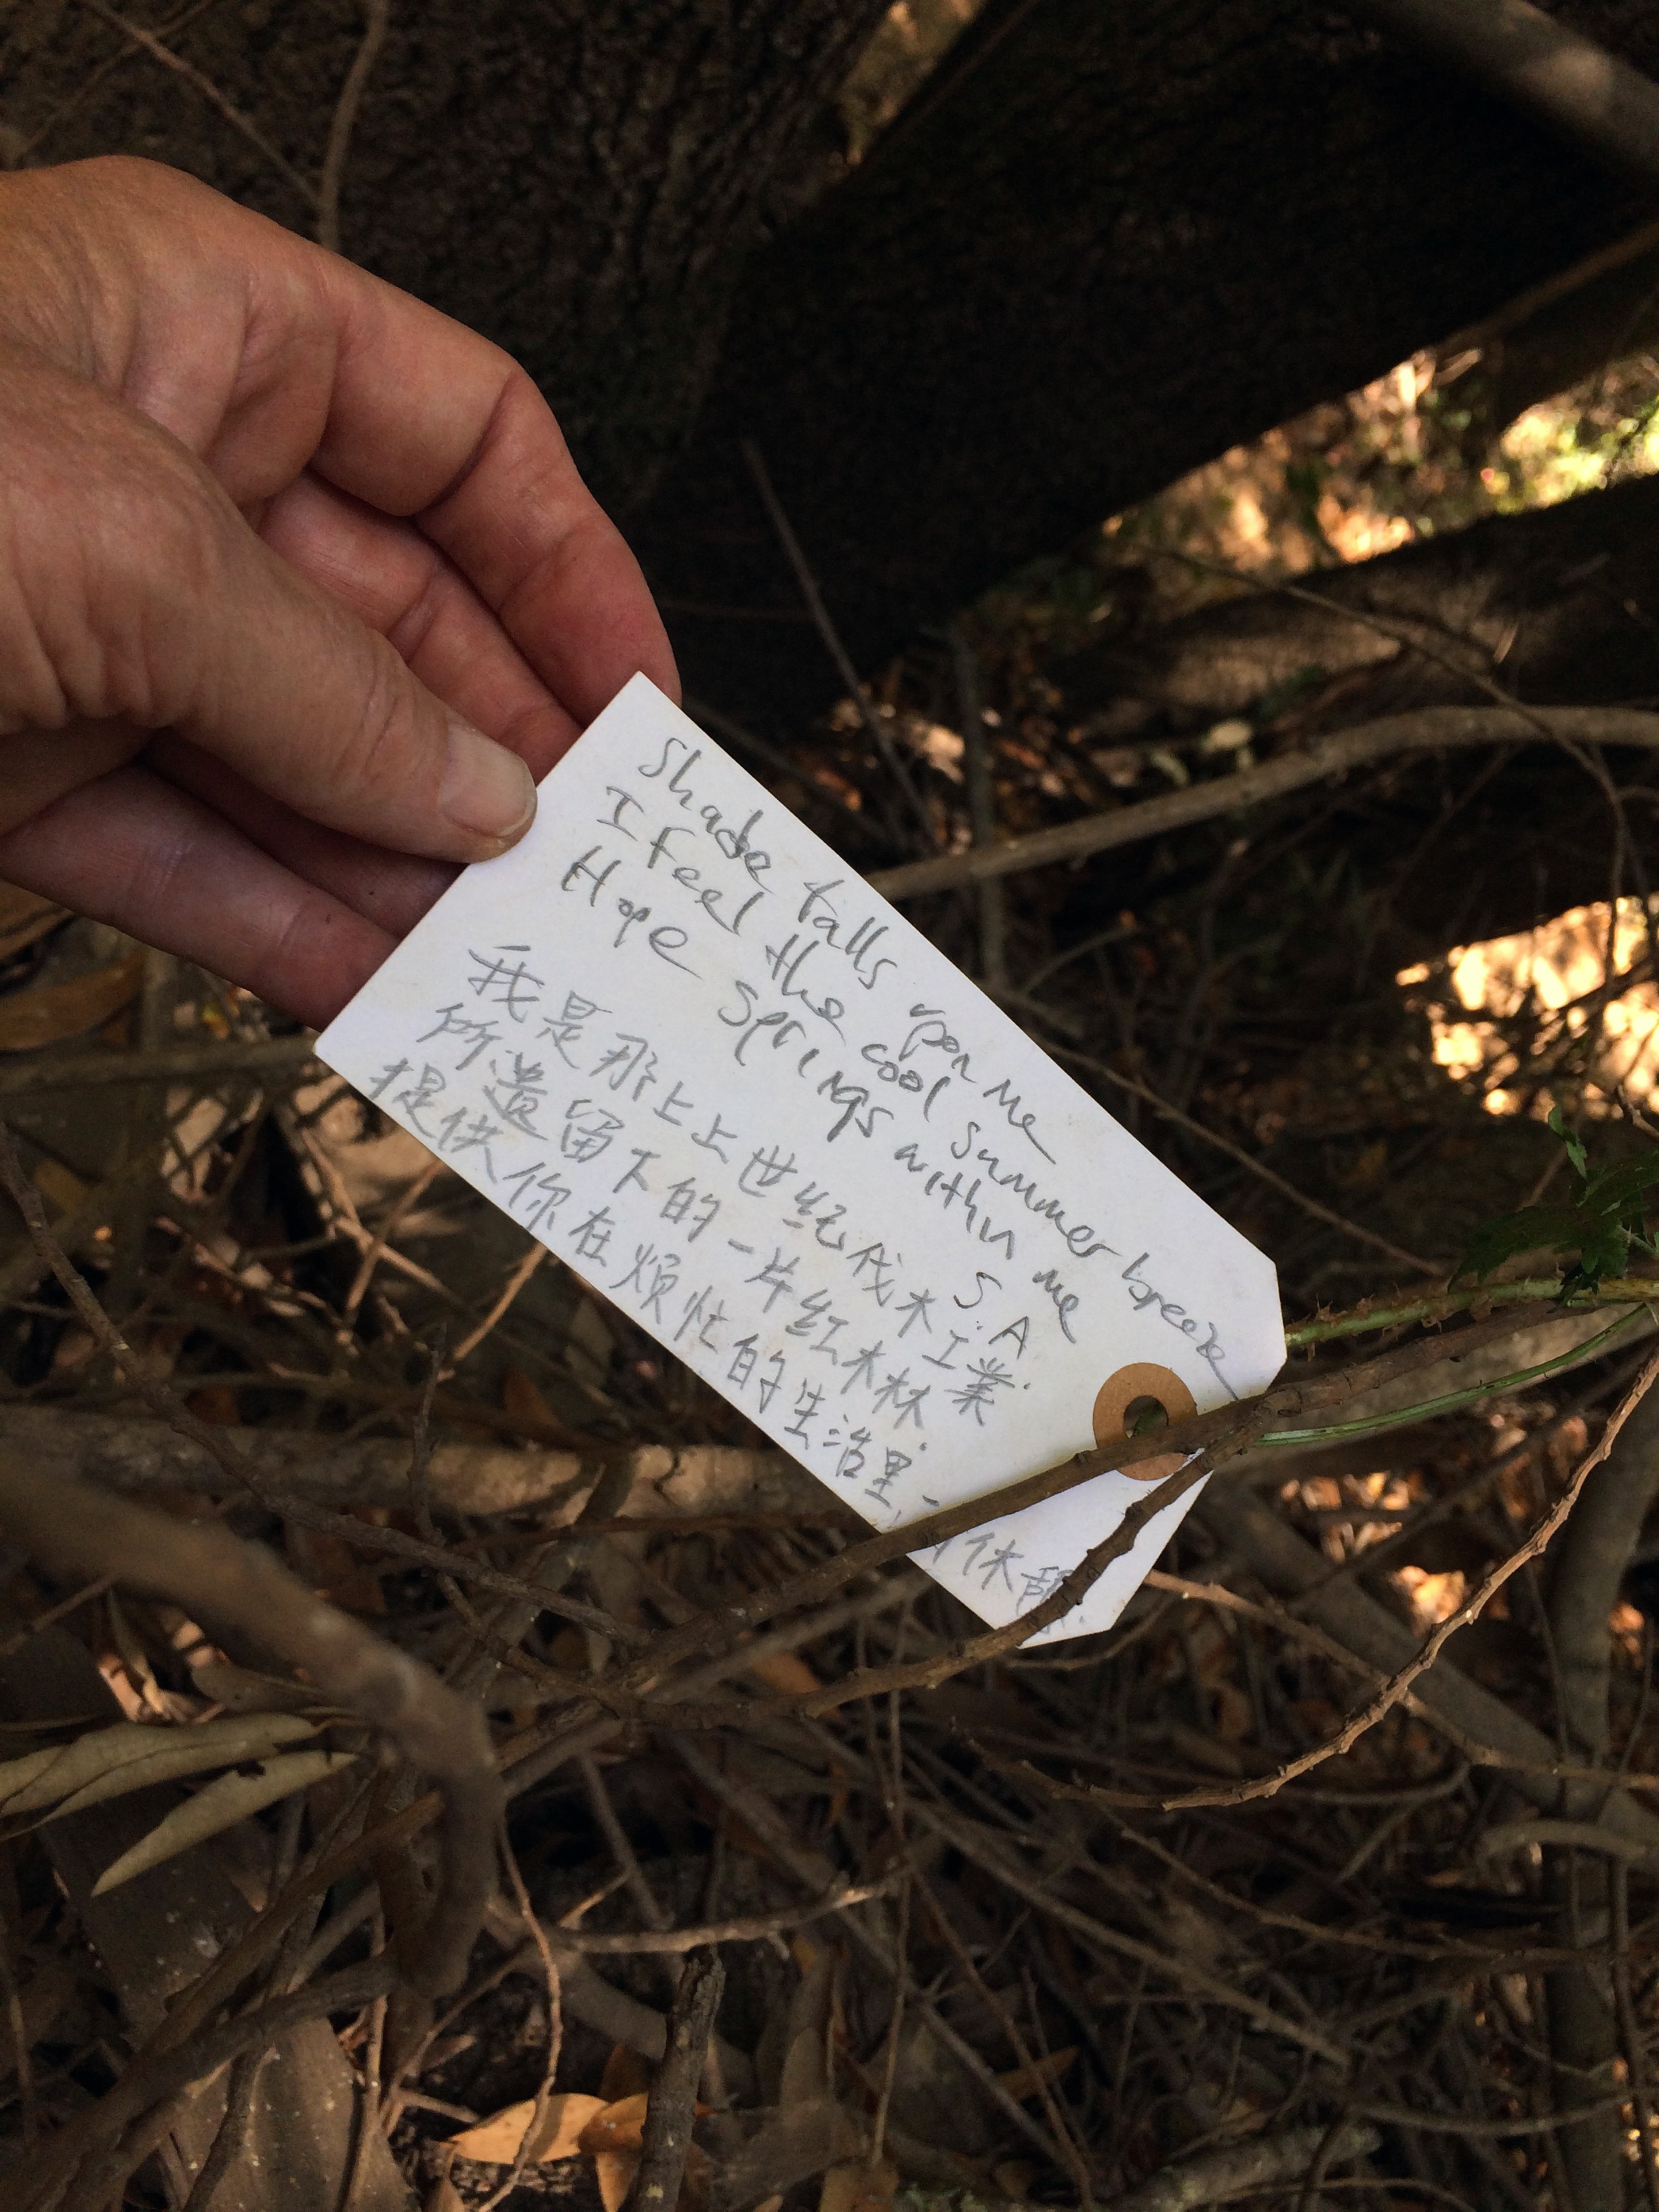 Shade falls upon me
I feel the cool summer breeze
Hope springs within me
S.A
我是那上上世纪伐木工業
所遗留下的一片红木林.
提供你在煩忙的生活里,
休